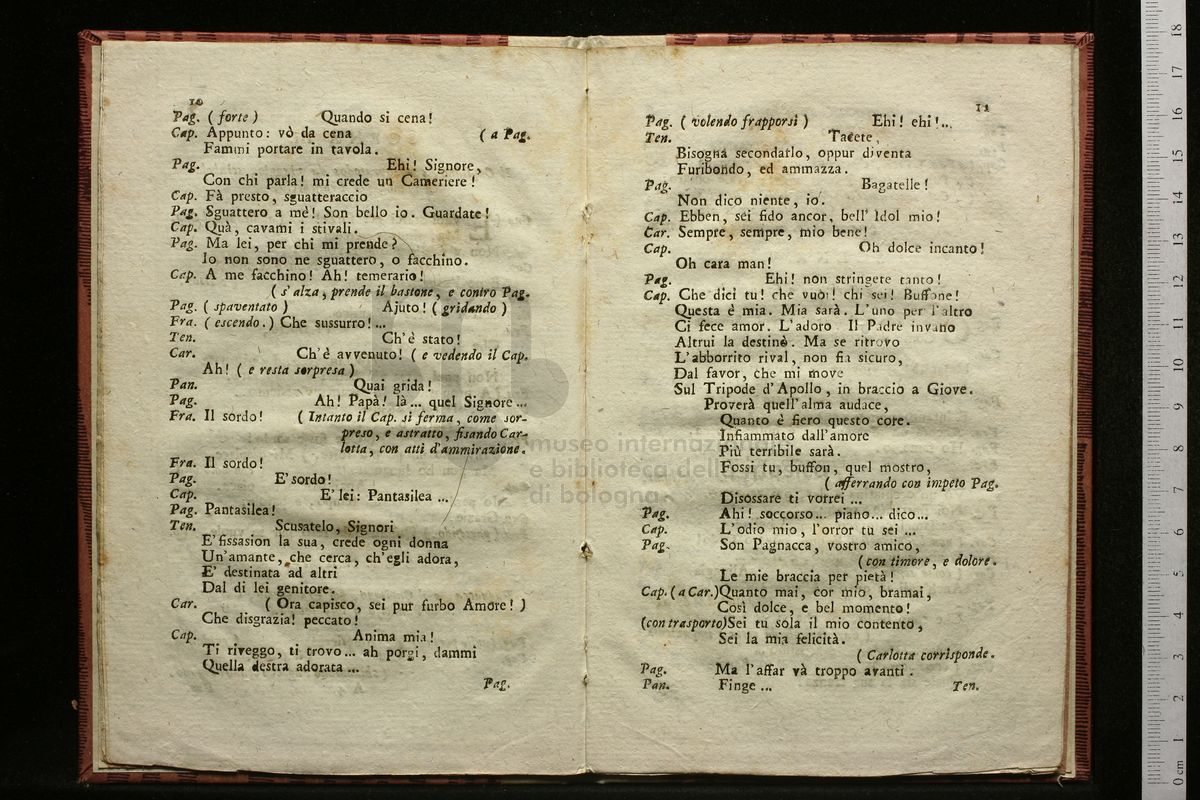 10
Pag. ( forte ) Quando si cena!
Cap. Appunto: vò da cena ( a Pag.
Fammi portare in tavola.
Pag. Ehi! Signore,
Con chi parla! mi crede un Cameriere!
Cap. Fà presto, sguatteraccio
Pag. Sguattero a mè! Son bello io. Guardate!
Cap. Quà, cavami i stivali.
Pag. Ma lei, per chi mi prende?
Io non sono ne sguattero, o facchino.
Cap. A me facchino! Ah! temerario!
( s'alza, prende il bastone, e contro Pag.
Pag. ( spaventato ) Ajuto! ( gridando )
Fra. ( escendo. ) Che sussurro!...
Ten. Ch'è stato!
Car. Ch'è avvenuto! ( e vedendo il Cap.
Ah! ( e resta sorpresa )
Pan. Quai grida!
Pag. Ah! Papà! là... quel Signore...
Fra. Il sordo! ( Intanto il Cap. si ferma, come sor-
preso, e astratto, fisando Car-
lotta, con atti d'ammirazione.
Fra. Il sordo!
Pag. E' sordo!
Cap. E' lei: Pantasilea ...
Pag. Pantasilea!
Ten. Scusatelo, Signori
E' fissasion la sua, crede ogni donna
Un'amante, che cerca, ch'egli adora,
E' destinata ad altri
Dal di lei genitore.
Car. ( Ora capisco, sei pur furbo Amore! )
Che disgrazia! peccato!
Cap. Anima mia!
Ti riveggo, ti trovo... ah porgi, dammi
Quella destra adorata ...
Pag.
11
Pag. ( volendo frapporsi ) Ehi! ehi!...
Ten. Tacete,
Bisogna secondarlo, oppur diventa
Furibondo, ed ammazza.
Pag. Bagatelle!
Non dico niente, io.
Cap. Ebben, sei fido ancor, bell' Idol mio!
Car. Sempre, sempre, mio bene!
Cap. Oh dolce incanto!
Oh cara man!
Pag. Ehi! non stringete tanto!
Cap. Che dici tu! che vuoi! chi sei! Buffone!
Questa è mia. Mia sarà. L'uno per l'altro
Ci fece amor. L'adoro Il Padre invano
Altrui la destinò. Ma se ritrovo
L'abborrito rival, non fia sicuro,
Dal favor, che mi move
Sul Tripode d'Apollo, in braccio a Giove.
Proverà quell'alma audace,
Quanto è fiero questo core.
Infiammato dall'amore
Più terribile sarà.
Fossi tu, buffon, quel mostro,
( afferrando con impeto Pag.
Disossare ti vorrei ...
Pag. Ahi! soccorso... piano... dico...
Cap. L'odio mio, l'orror tu sei ...
Pag. Son Pagnacca, vostro amico,
( con timore, e dolore.
Le mie braccia per pietà!
Cap. ( a Car.) Quanto mai, cor mio, bramai,
Così dolce, e bel momento!
(con trasporto) Sei tu sola il mio contento,
Sei la mia felicità.
( Carlotta corrisponde.
Pag. Ma l'affar và troppo avanti.
Pan. Finge ... Ten.
museo internazionale
e biblioteca della musica
di bologna
0 cm 1 2 3 4 5 6 7 8 9 10 11 12 13 14 15 16 17 18